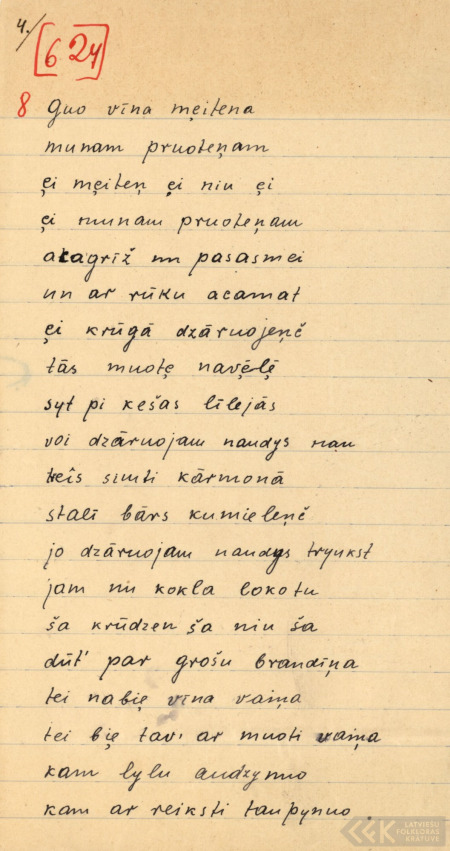 4.
[624]
8 Guo vīna męitena
munam pruoteņam
ęi męiteņ ęi niu ęi
ęi munam pruoteņam
atagrīž un pasasmei
un ar rūku acamat
ęi krūgā dzāruojeņč
tās muotę navęlę
syt pi kešas līlejās
voi dzāruojam naudys nau
treîs simti kārmonā
stalī bārs kumieleņč
jo dzāruojam naudys tryukst
jam nu kokla lokotu
ša krūdzen ša niu ša
dūt' par grošu brandīņa
tei nabię vīna vaiņa
tei bię tav' ar muoti vaiņa
kam lylu audzynuo
kam ar reiksti taupynuo.
LATVIEŠU
FOLKLORAS
KRĀTUVE